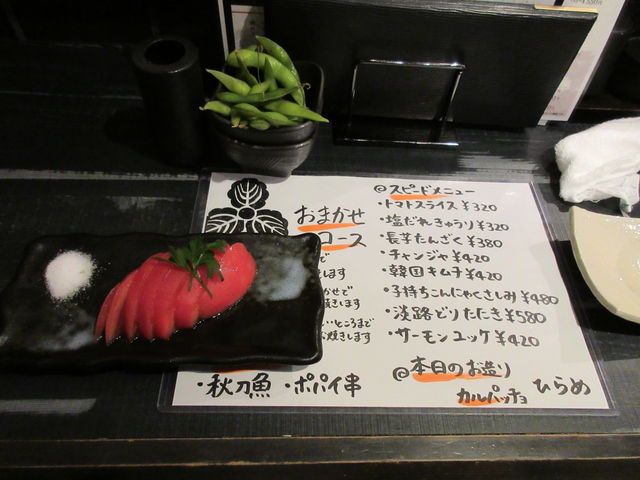 おまかせ
コース
で
します
かせで
焼きします
いところまで
お焼きします
・秋刀魚 ・ポパイ串
@スピードメニュー
・トマトスライス ¥320
・塩だれきゅうり ¥320
・長芋たんざく ¥380
・チャンジャ ¥420
・韓国キムチ ¥420
・子持ちこんにゃくさしみ ¥480
・淡路どりたたき ¥580
・サーモンユッケ ¥420
@本日のお造り
カルパッチョ ひらめ